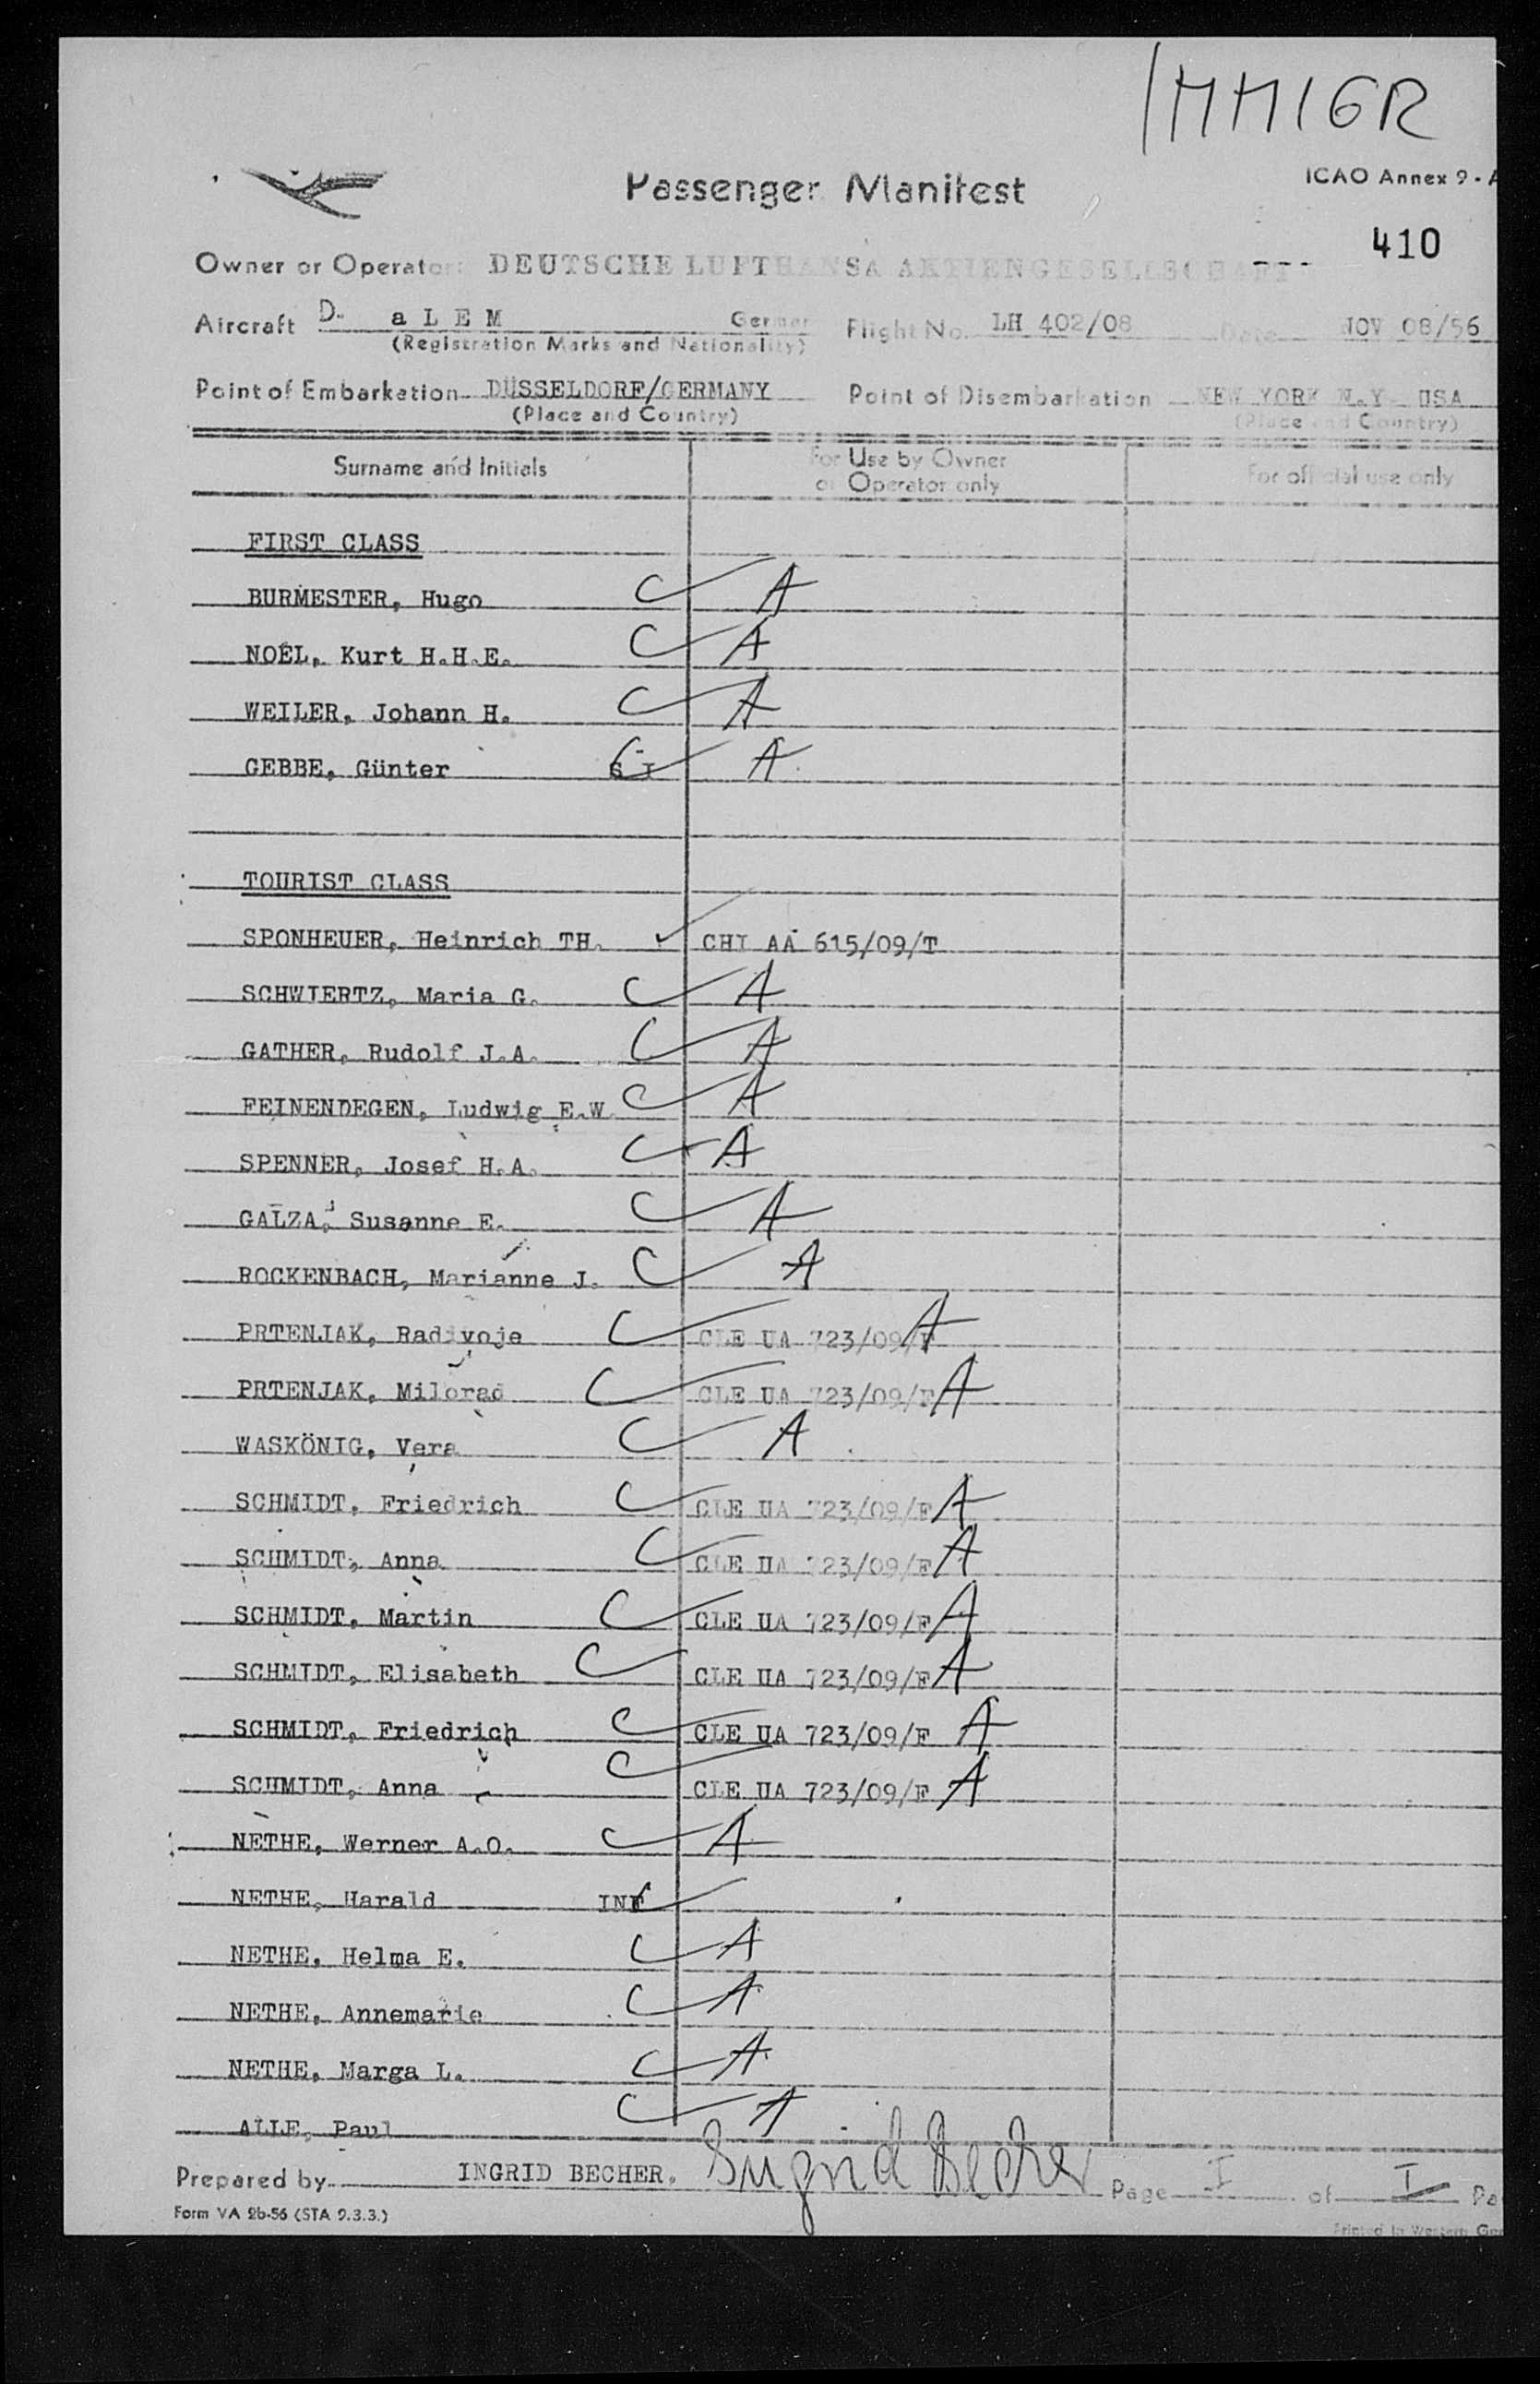 IMMIGR
Passenger Manifest
ICAO Annex 9 - A
410
Owner or Operator: DEUTSCHE LUFTHANSA AKTIENGESELLSCHAFT
Aircraft D- a L E M German Flight No. LH 402/08 Date NOV 08/56
(Registration Marks and Nationality)
Point of Embarkation DÜSSELDORF/GERMANY Point of Disembarkation NEW YORK N.Y. USA
(Place and Country) (Place and Country)
Surname and Initials For Use by Owner or Operator only For official use only
FIRST CLASS
BURMESTER, Hugo C A
NOËL, Kurt H.H.E. C A
WEILER, Johann H. C A
GEBBE, Günter C A
TOURIST CLASS
SPONHEUER, Heinrich TH. CHI AA 615/09/T
SCHWIERTZ, Maria G. C A
GATHER, Rudolf J.A. C A
FEINENDEGEN, Ludwig E.W. C A
SPENNER, Josef H.A. C A
GALZA, Susanne E. C A
ROCKENBACH, Marianne J. C A
PRTENJAK, Radivoje C CLE UA 723/09/F A
PRTENJAK, Milorad C CLE UA 723/09/F A
WASKÖNIG, Vera C A
SCHMIDT, Friedrich C CLE UA 723/09/F A
SCHMIDT, Anna C CLE UA 723/09/F A
SCHMIDT, Martin C CLE UA 723/09/F A
SCHMIDT, Elisabeth C CLE UA 723/09/F A
SCHMIDT, Friedrich C CLE UA 723/09/F A
SCHMIDT, Anna C CLE UA 723/09/F A
NETHE, Werner A.O. C A
NETHE, Harald INF C
NETHE, Helma E. C A
NETHE, Annemarie C A
NETHE, Marga L. C A
ALLE, Paul C A
Prepared by INGRID BECHER. Ingrid Becher Page I of I Pa
Form VA 2b-56 (STA 9.3.3.)
Printed in Western Ger